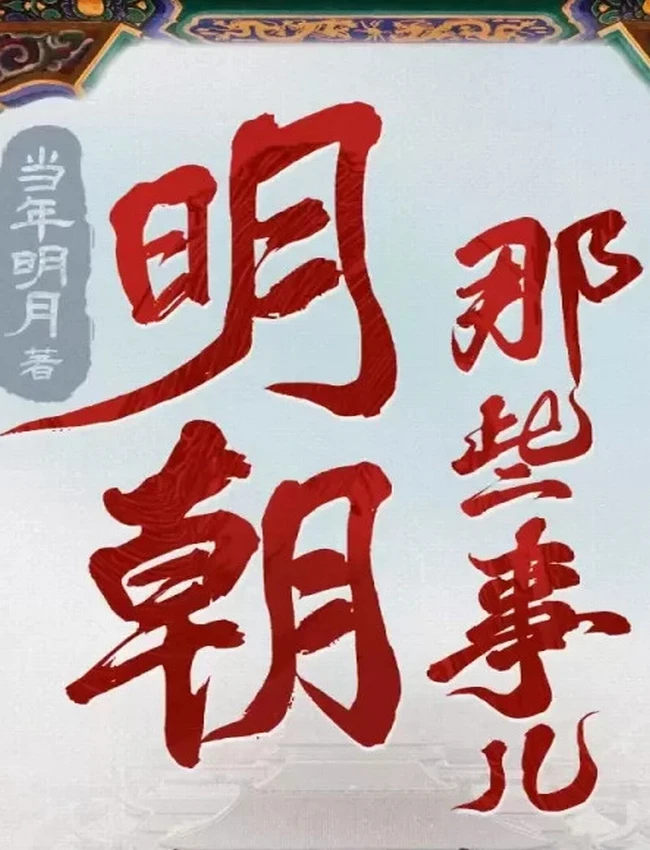 明朝
那些事儿
当年明月 著